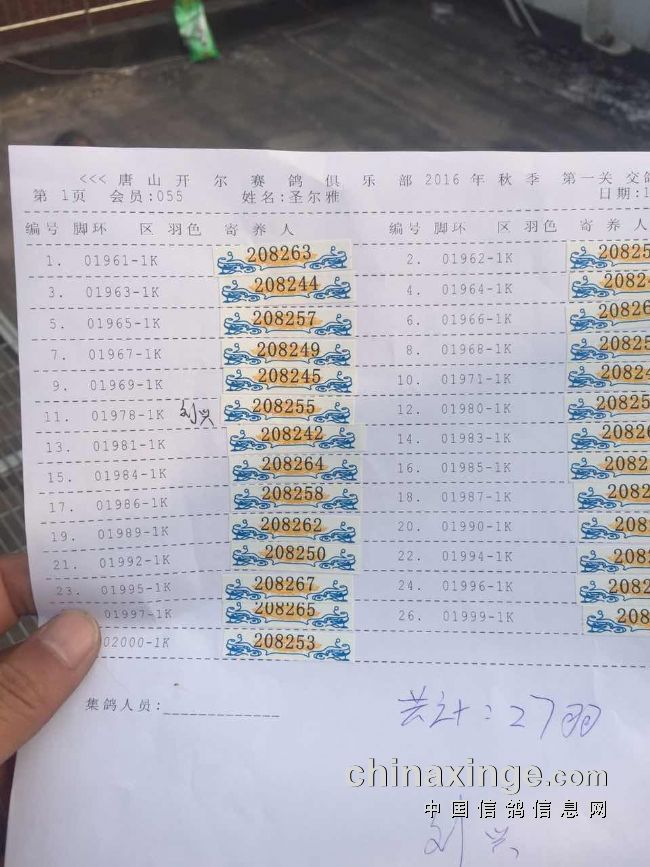 <<< 唐山开尔赛鸽俱乐部2016年秋季 第一关 交鸽
第 1页 会员:055 姓名:圣尔雅 日期:1
编号 脚环 区 羽色 寄养人 编号 脚环 区 羽色 寄养人
1. 01961-1K 208263 2. 01962-1K 20825
3. 01963-1K 208244 4. 01964-1K 20824
5. 01965-1K 208257 6. 01966-1K 20826
7. 01967-1K 208249 8. 01968-1K 20825
9. 01969-1K 208245 10. 01971-1K 20824
11. 01978-1K 刘兴 208255 12. 01980-1K 20825
13. 01981-1K 208242 14. 01983-1K 20826
15. 01984-1K 208264 16. 01985-1K 2082
17. 01986-1K 208258 18. 01987-1K 2082
19. 01989-1K 208262 20. 01990-1K 2082
21. 01992-1K 208250 22. 01994-1K 2082
23. 01995-1K 208267 24. 01996-1K 2082
01997-1K 208265 26. 01999-1K 208
02000-1K 208253
集鸽人员:
共计:27羽
刘兴
chinaxinge.com
中国信鸽信息网